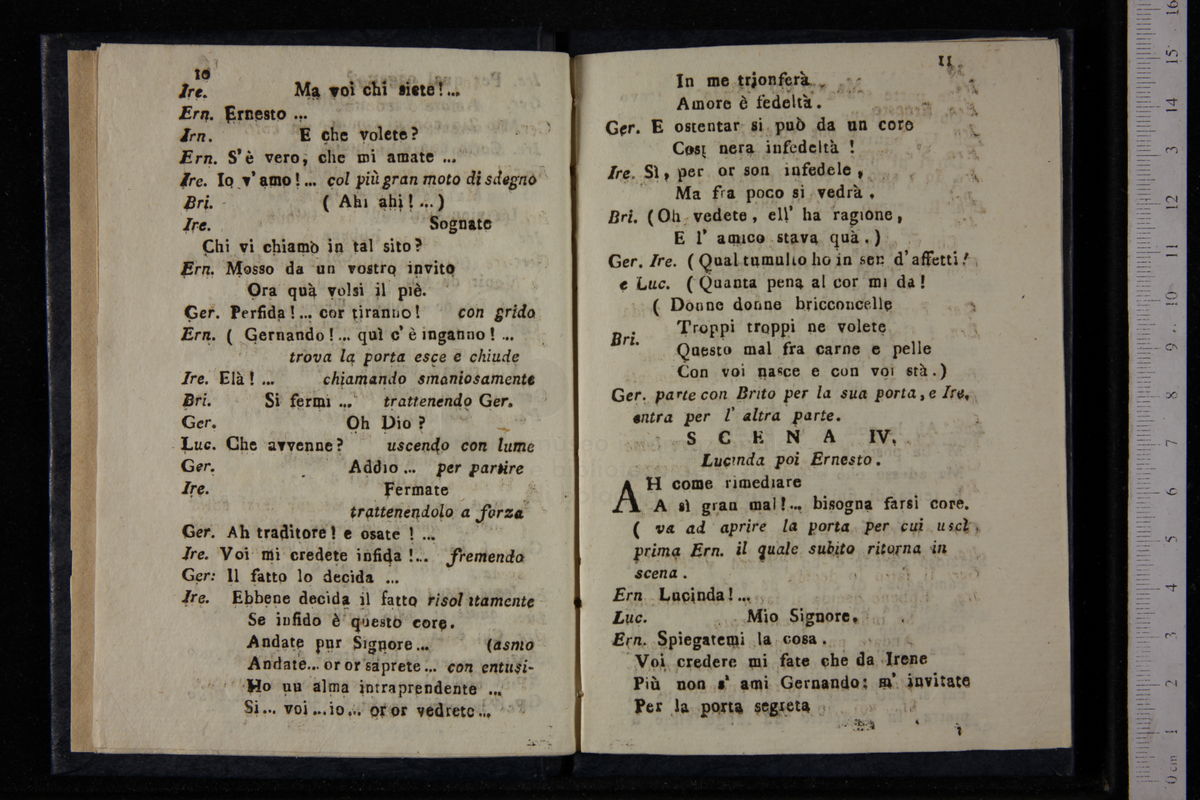 10
Ire. Ma voi chi siete!...
Ern. Ernesto ...
Irn. E che volete?
Ern. S'è vero, che mi amate ...
Ire. Io v'amo!... col più gran moto di sdegno
Bri. ( Ahi ahi!...)
Ire. Sognate
Chi vi chiamò in tal sito?
Ern. Mosso da un vostro invito
Ora quà volsi il piè.
Ger. Perfida!... cor tiranno! con grido
Ern. ( Gernando!... quì c'è inganno! ...
trova la porta esce e chiude
Ire. Elà! ... chiamando smaniosamente
Bri. Si fermi ... trattenendo Ger.
Ger. Oh Dio ?
Luc. Che avvenne? uscendo con lume
Ger. Addio ... per partire
Ire. Fermate
trattenendolo a forza
Ger. Ah traditore! e osate ! ...
Ire. Voi mi credete infida !... fremendo
Ger: Il fatto lo decida ...
Ire. Ebbene decida il fatto risolutamente
Se infido è questo core.
Andate pur Signore... (asmo
Andate... or or saprete... con entusi-
Ho un alma intraprendente ...
Si... voi ...io... or or vedrete...
11
In me trionferà
Amore è fedeltà.
Ger. E ostentar si può da un core
Così nera infedeltà !
Ire. Sì, per or son infedele,
Ma fra poco si vedrà.
Bri. (Oh vedete, ell' ha ragione,
E l' amico stava quà.)
Ger. Ire. ( Qual tumulto ho in sen d'affetti!
e Luc. ( Quanta pena al cor mi da!
( Donne donne bricconcelle
Troppi troppi ne volete
Bri.
Questo mal fra carne e pelle
Con voi nasce e con voi stà.)
Ger. parte con Brito per la sua porta, e Ire.
entra per l' altra parte.
SCENA IV.
Lucinda poi Ernesto.
AH come rimediare
A sì gran mal!... bisogna farsi core.
( va ad aprire la porta per cui uscì
prima Ern. il quale subito ritorna in
scena.
Ern Lucinda!...
Luc. Mio Signore.
Ern. Spiegatemi la cosa.
Voi credere mi fate che da Irene
Più non s' ami Gernando; m' invitate
Per la porta segreta
16
15
14
13
12
11
10
9
8
7
6
5
4
3
2
1
0 cm